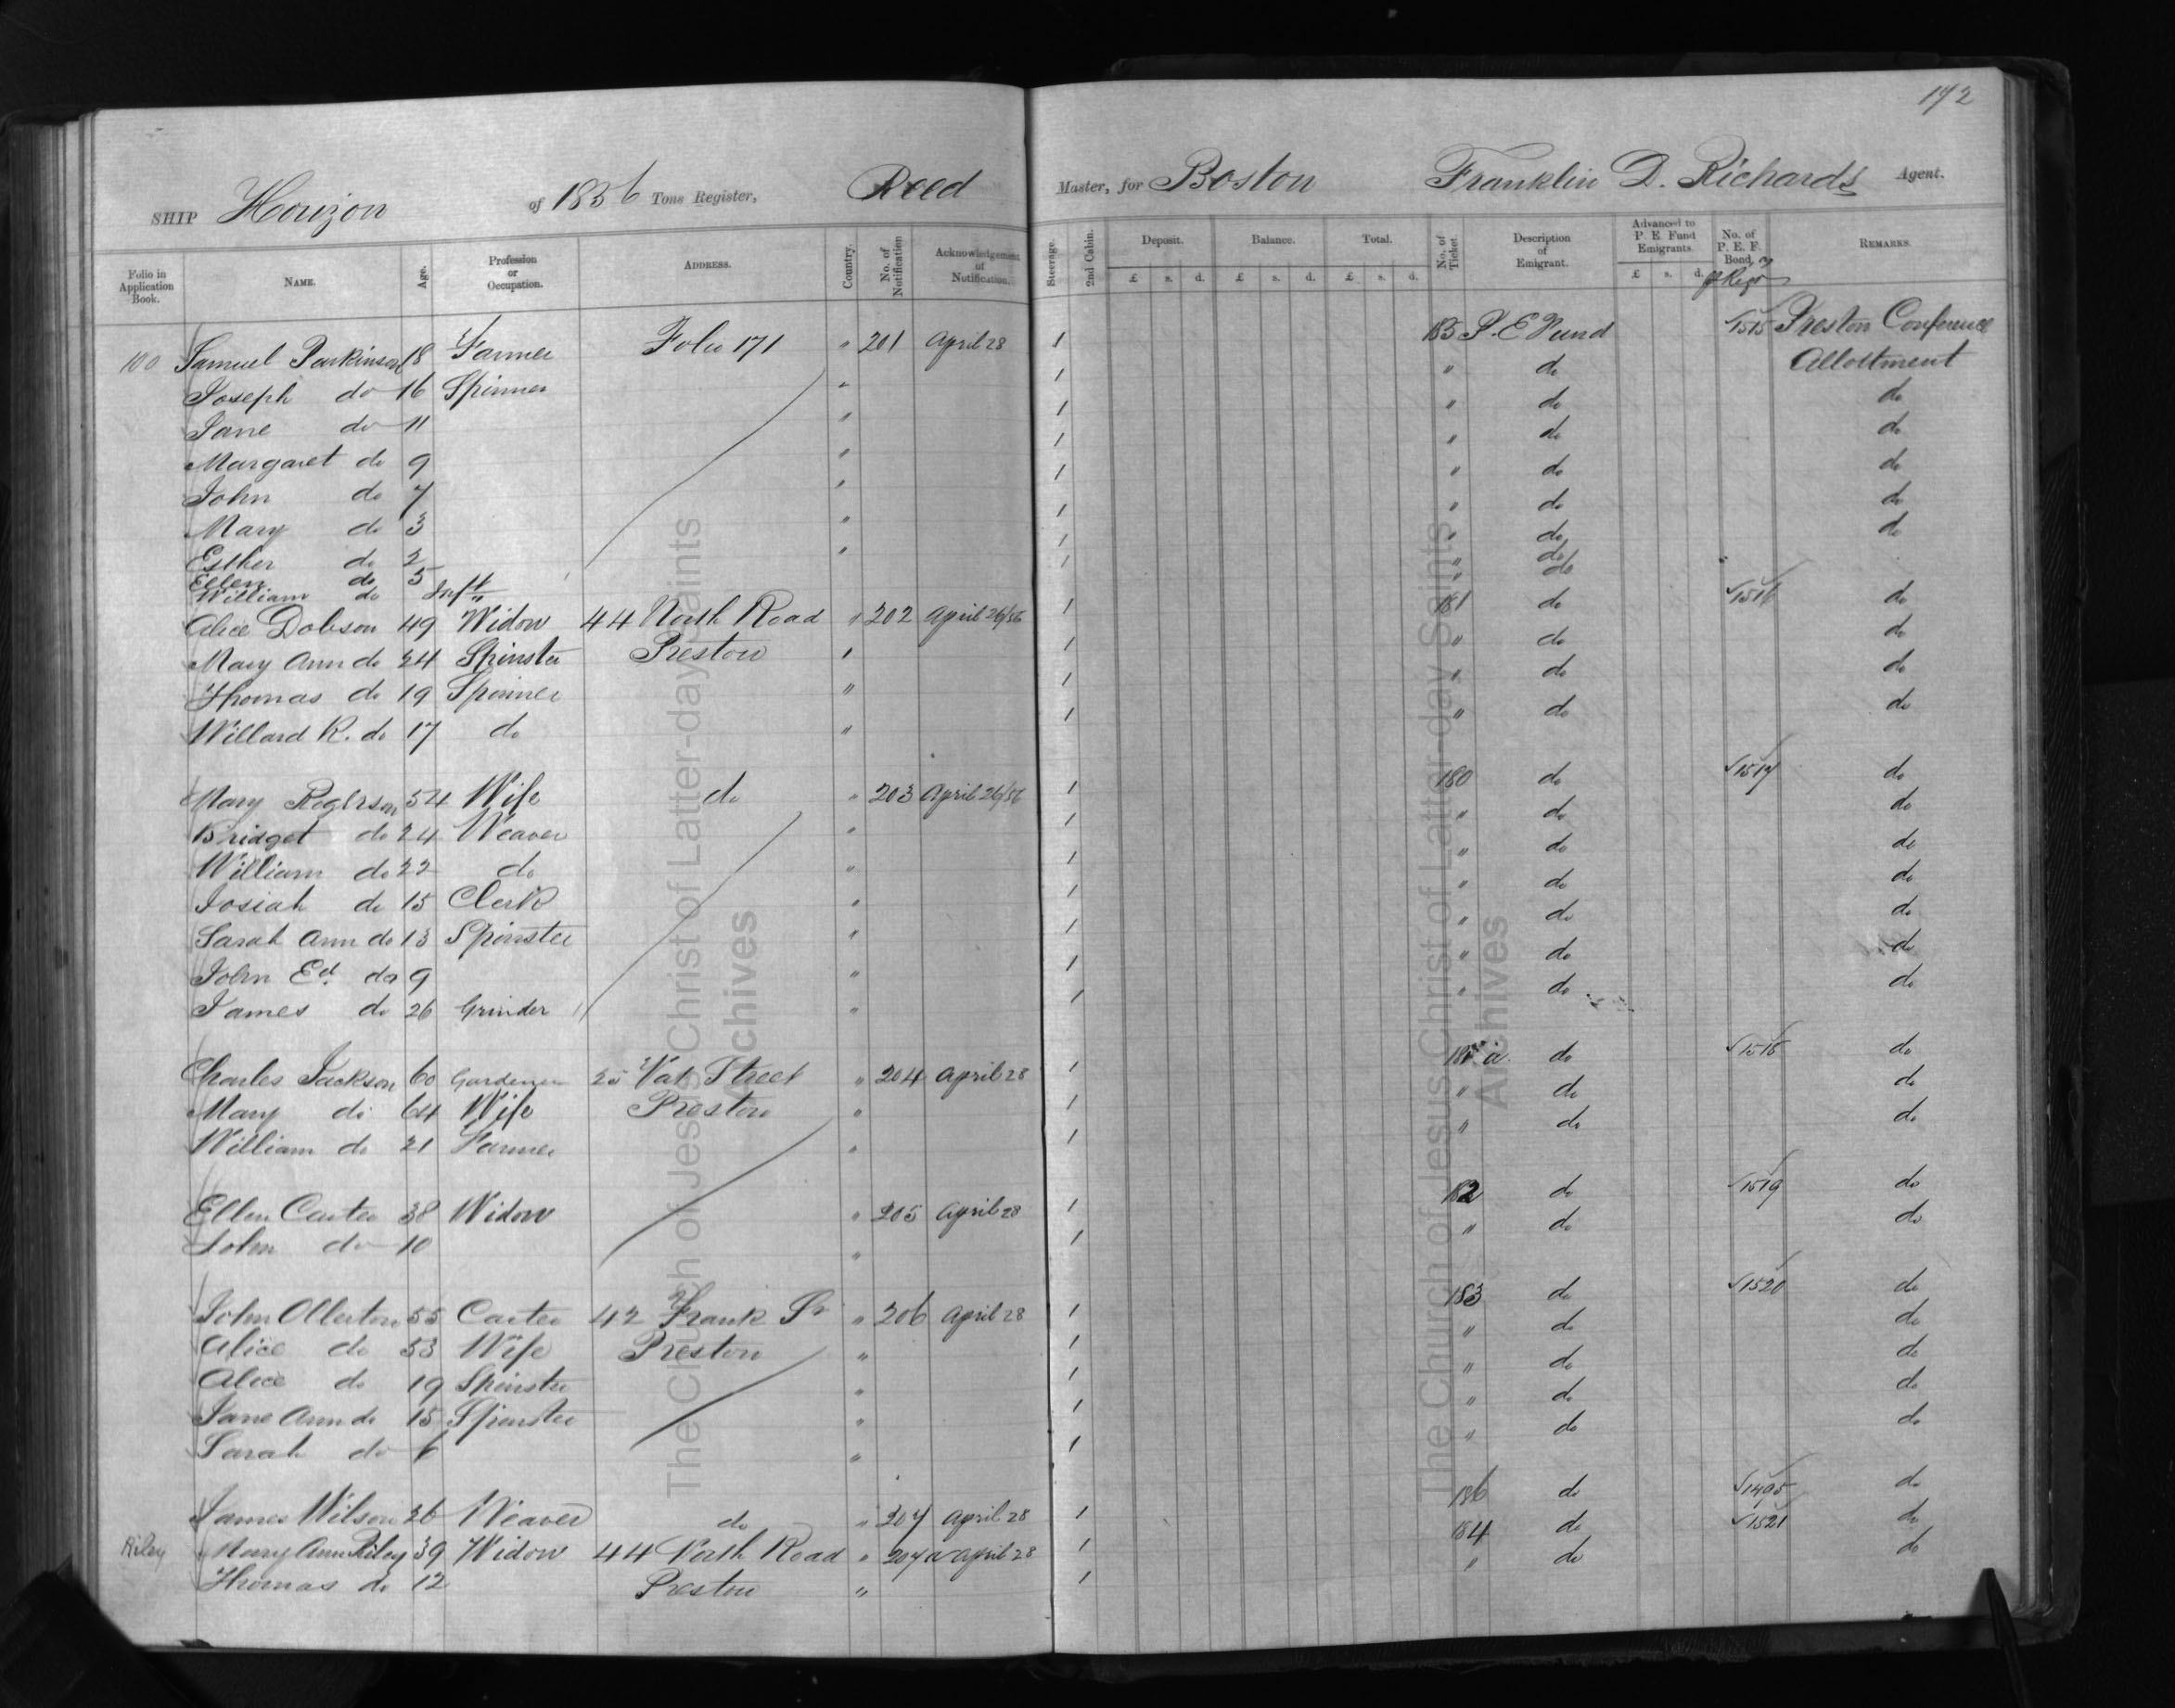 172
SHIP Horizon of 1836 Tons Register, Reed Master, for Boston Franklin D. Richards Agent.
Folio in Application Book. NAME. Age. Profession or Occupation. ADDRESS. Country. No. of Notification Acknowledgement of Notification. Steerage. 2nd Cabin. Deposit. Balance. Total. No. of Ticket. Description of Emigrant. Advanced to P. E Fund Emigrants. No. of P. E. F. Bond. REMARKS.
£ s. d. £ s. d. £ s. d. £ s. d.
100 Samuel Parkinson 18 Farmer Folio 171 " 201 April 28 1 185 P. E Fund 1515 Preston Conference
Joseph do 16 Spinner " 1 " do Allottment
Jane do 11 " 1 " do do
Margaret do 9 " 1 " do do
John do 7 " 1 " do do
Mary do 3 " 1 " do do
Esther do 2 " 1 " do do
Ellen do 5 1 " do
William do Inft " do
Alice Dobson 49 Widow 44 North Road " 202 April 26/56 1 181 do 1516 do
Mary Ann do 24 Spinster Preston " 1 " do do
Thomas do 19 Spinner " 1 " do do
Willard R. do 17 do " 1 " do do
Mary Rogerson 54 Wife do " 203 April 26/56 1 180 do 1517 do
Bridget do 24 Weaver " 1 " do do
William do 22 do " 1 " do do
Josiah do 15 Clerk " 1 " do do
Sarah Ann do 13 Spinster " 1 " do do
John Ed. do 9 " 1 " do do
James do 26 Grinder " 1 " do do
Charles Jackson 60 Gardener 25 Vat Street " 204 April 28 1 a do 1518 do
Mary do 64 Wife Preston " 1 " do do
William do 21 Farmer " 1 " do do
Ellen Carter 38 Widow " 205 April 28 1 182 do 1519 do
John do 10 " 1 " do do
John Ollerton 55 Carter 42 Frank St " 206 April 28 1 183 do 1520 do
Alice do 53 Wife Preston " 1 " do do
Alice do 19 Spinster " 1 " do do
Jane Ann do 15 Spinster " 1 " do do
Sarah do 6 " 1 " do do
James Wilson 26 Weaver do " 207 April 28 1 186 do 1495 do
Riley Mary Ann Riley 39 Widow 44 North Road " 207a April 28 1 184 do 1521 do
Thomas do 12 Preston " 1 " do do
The Church of Jesus Christ of Latter-day Saints
Archives
The Church of Jesus Christ of Latter-day Saints
Archives